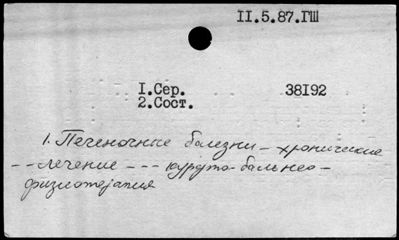 II.5.87.ГШ
I.Сер. 38I92
2.Сост.
1. Печеночные болезни – хронические
-- лечение --- курорто-бальнео-
физиотерапия